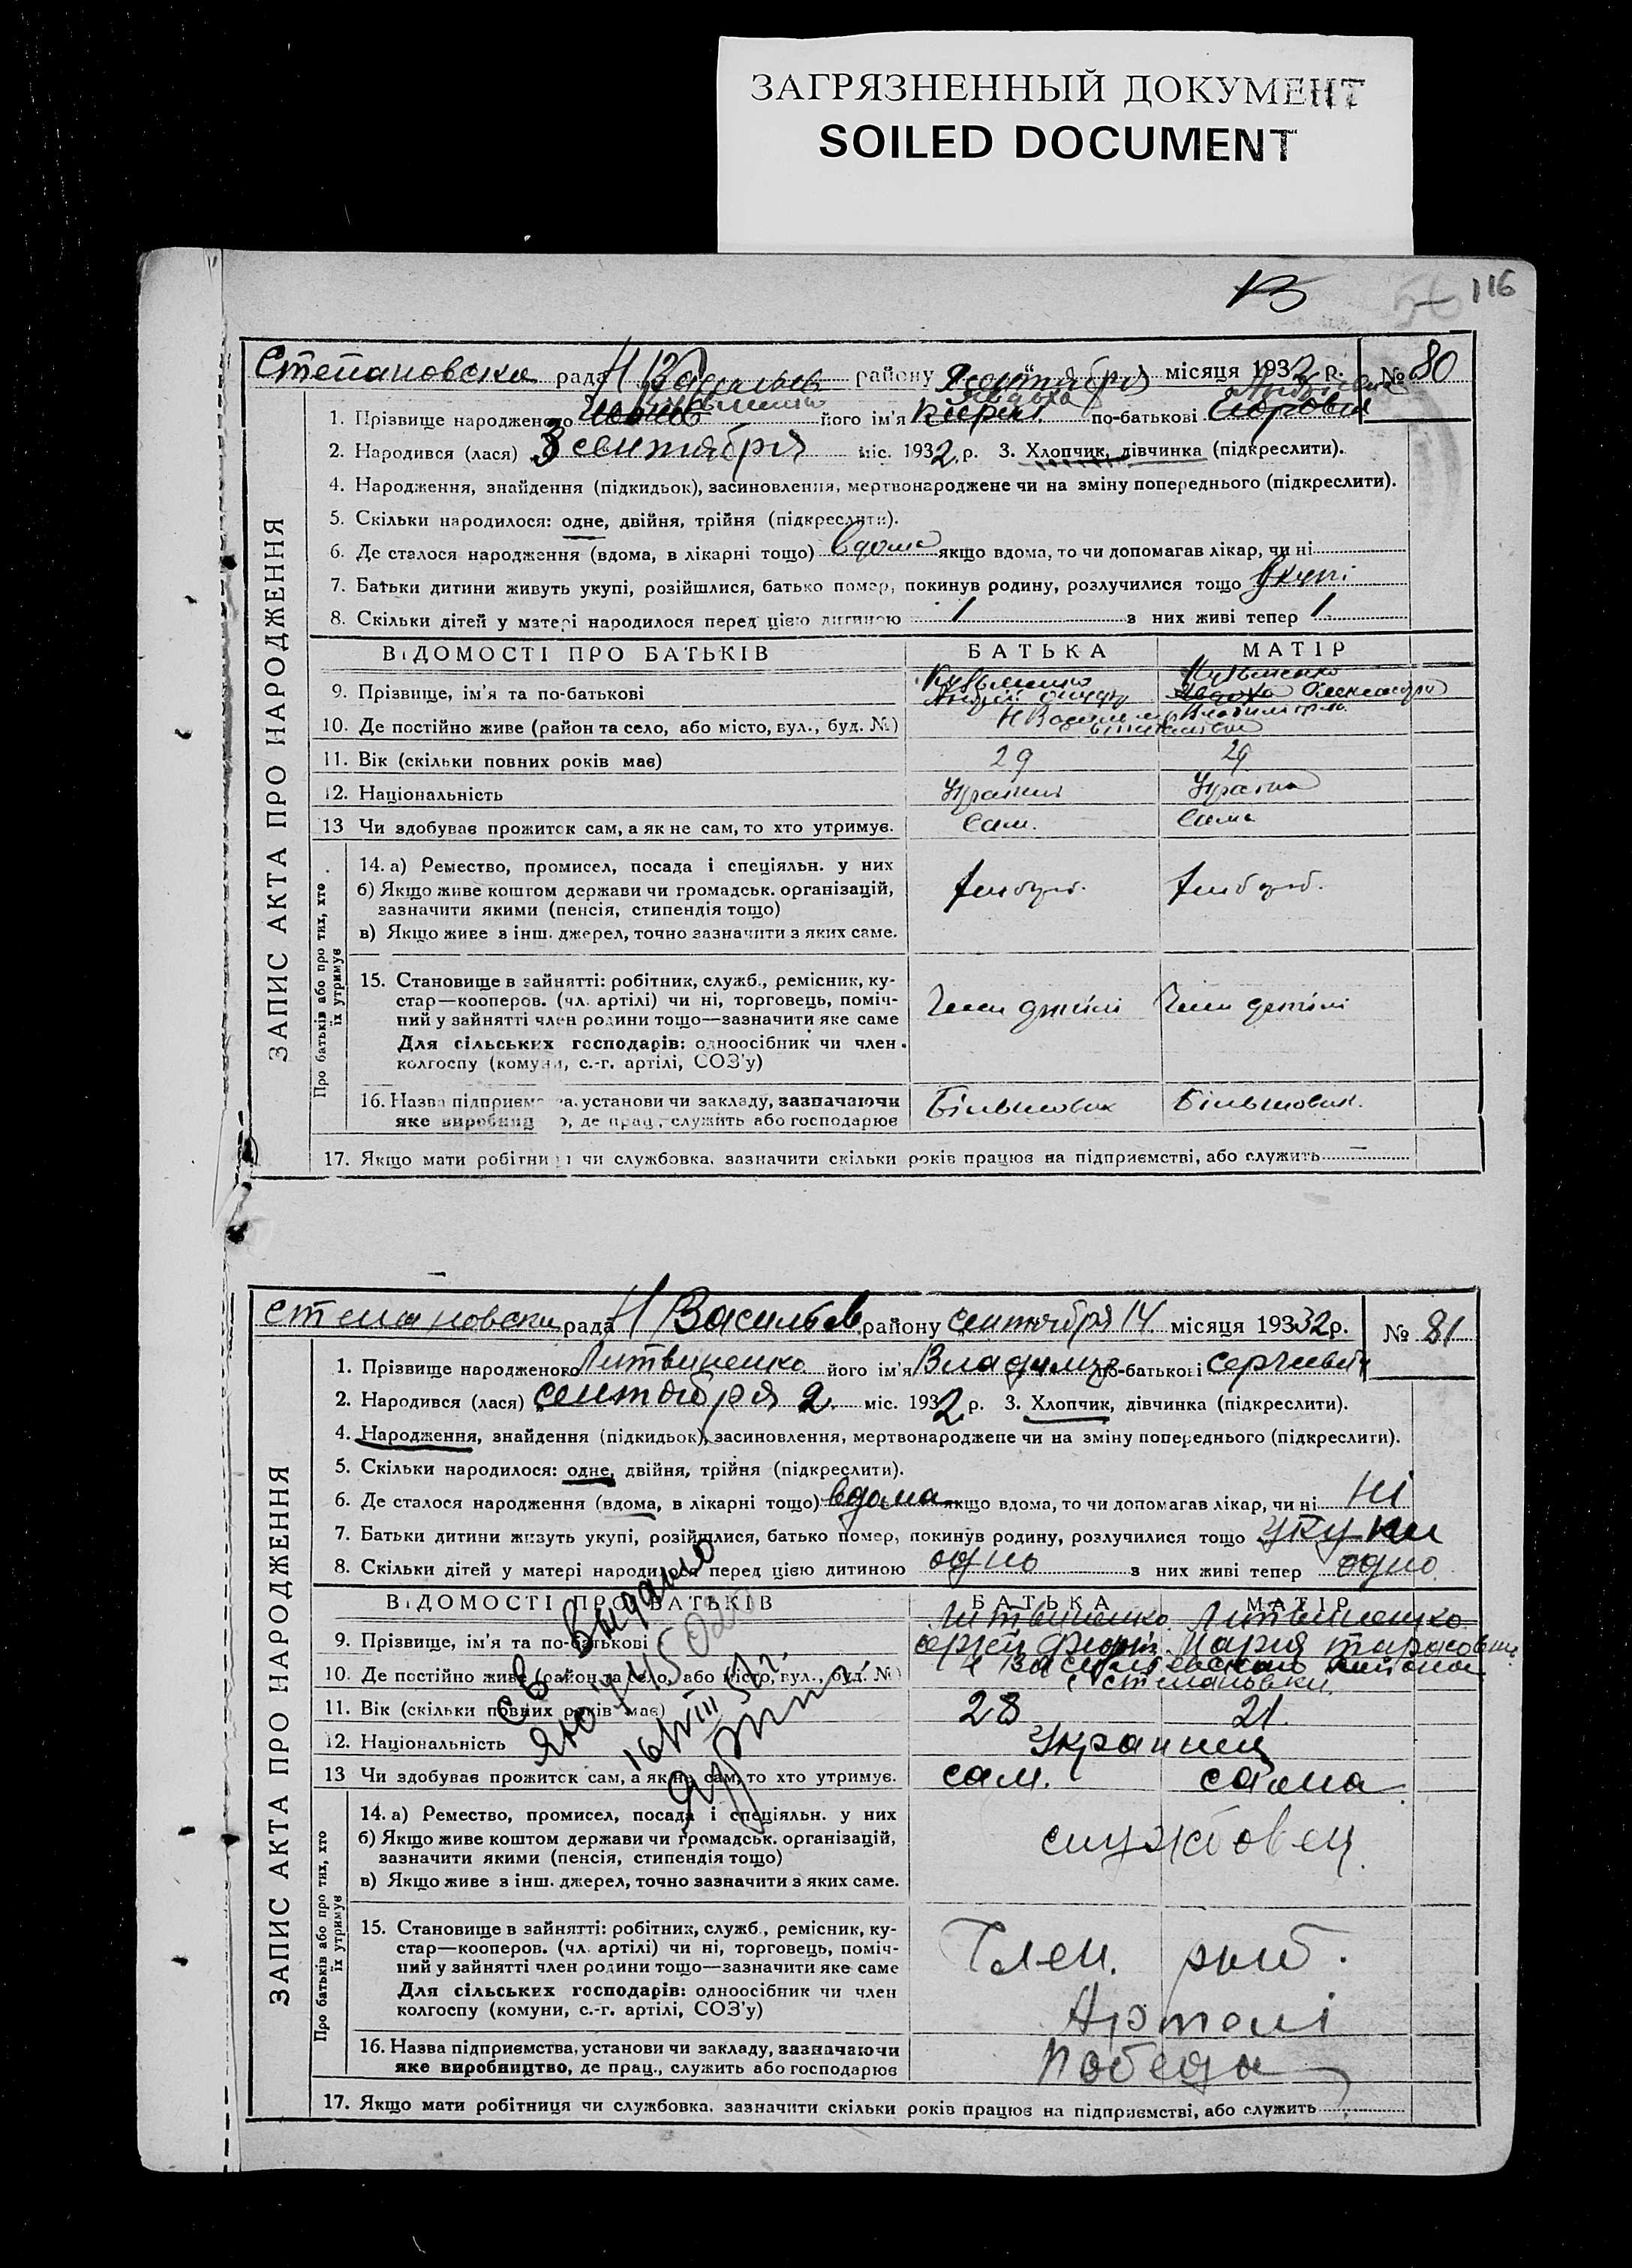 ЗАГРЯЗНЕННЫЙ ДОКУМЕНТ
SOILED DOCUMENT
116
Степановска рада Н Васильев району сентября місяця 1932 р. № 80
1. Прізвище народженого його ім'я по-батькові
2. Народився (лася) 3 сентября міс. 1932 р. 3. Хлопчик, дівчинка (підкреслити).
4. Народження, знайдення (підкидьок), засиновлення, мертвонароджене чи на зміну попереднього (підкреслити).
5. Скільки народилося: одне, двійня, трійня (підкреслити).
6. Де сталося народження (вдома, в лікарні тощо) вдома якщо вдома, то чи допомагав лікар, чи ні
7. Батьки дитини живуть укупі, розійшлися, батько помер, покинув родину, розлучилися тощо укупі
8. Скільки дітей у матері народилося перед цією дитиною 1 з них живі тепер 1
ЗАПИС АКТА ПРО НАРОДЖЕННЯ
ВІДОМОСТІ ПРО БАТЬКІВ БАТЬКА МАТІР
9. Прізвище, ім'я та по-батькові
10. Де постійно живе (район та село, або місто, вул., буд. №)
11. Вік (скільки повних років має) 29 29
12. Національність
13 Чи здобував прожиток сам, а як не сам, то хто утримує. Сам. Сама
Про батьків або про тих, хто їх утримує
14. а) Ремество, промисел, посада і спеціяльн. у них
б) Якщо живе коштом держави чи громадськ. організацій,
зазначити якими (пенсія, стипендія тощо)
в) Якщо живе з інш. джерел, точно зазначити з яких саме.
15. Становище в зайнятті: робітник, служб., ремісник, ку-
стар—кооперов. (чл. артілі) чи ні, торговець, поміч-
ний у зайнятті член родини тощо—зазначити яке саме
Для сільських господарів: одноосібник чи член
колгоспу (комуни, с.-г. артілі, СОЗ'у)
16. Назва підприємства, установи чи закладу, зазначаючи Більшовик Більшовик.
яке виробництво, де прац., служить або господарює
17. Якщо мати робітниця чи службовка, зазначити скільки років працює на підприємстві, або служить —
Степановска рада Н Васильев району сентября 14 місяця 19332 р. № 81
1. Прізвище народженого Литвиненко його ім'я Владимир по-батькові Сергиевич
2. Народився (лася) сентября 2 міс. 1932 р. 3. Хлопчик, дівчинка (підкреслити).
4. Народження, знайдення (підкидьок), засиновлення, мертвонароджене чи на зміну попереднього (підкреслити).
5. Скільки народилося: одне, двійня, трійня (підкреслити).
6. Де сталося народження (вдома, в лікарні тощо) вдома якщо вдома, то чи допомагав лікар, чи ні ні
7. Батьки дитини живуть укупі, розійшлися, батько помер, покинув родину, розлучилися тощо укупи
8. Скільки дітей у матері народилося перед цією дитиною одно з них живі тепер одно
ЗАПИС АКТА ПРО НАРОДЖЕННЯ
ВІДОМОСТІ ПРО БАТЬКІВ БАТЬКА МАТІР
Литвиненко Литвиненко
9. Прізвище, ім'я та по-батькові Сергей Мария Тарасовна
10. Де постійно живе (район та село, або місто, вул., буд. №) Н Васильевского района
с Степановки
11. Вік (скільки повних років має) 28 21.
12. Національність Украинец
13 Чи здобував прожиток сам, а як не сам, то хто утримує. сам. сама
Выдано
16/VIII 51 г.
Про батьків або про тих, хто їх утримує
14. а) Ремество, промисел, посада і спеціяльн. у них
б) Якщо живе коштом держави чи громадськ. організацій, службовец
зазначити якими (пенсія, стипендія тощо)
в) Якщо живе з інш. джерел, точно зазначити з яких саме.
15. Становище в зайнятті: робітник, служб., ремісник, ку-
стар—кооперов. (чл. артілі) чи ні, торговець, поміч- Член. рыб.
ний у зайнятті член родини тощо—зазначити яке саме
Для сільських господарів: одноосібник чи член
колгоспу (комуни, с.-г. артілі, СОЗ'у) Артелі
16. Назва підприємства, установи чи закладу, зазначаючи Победа
яке виробництво, де прац., служить або господарює
17. Якщо мати робітниця чи службовка, зазначити скільки років працює на підприємстві, або служить